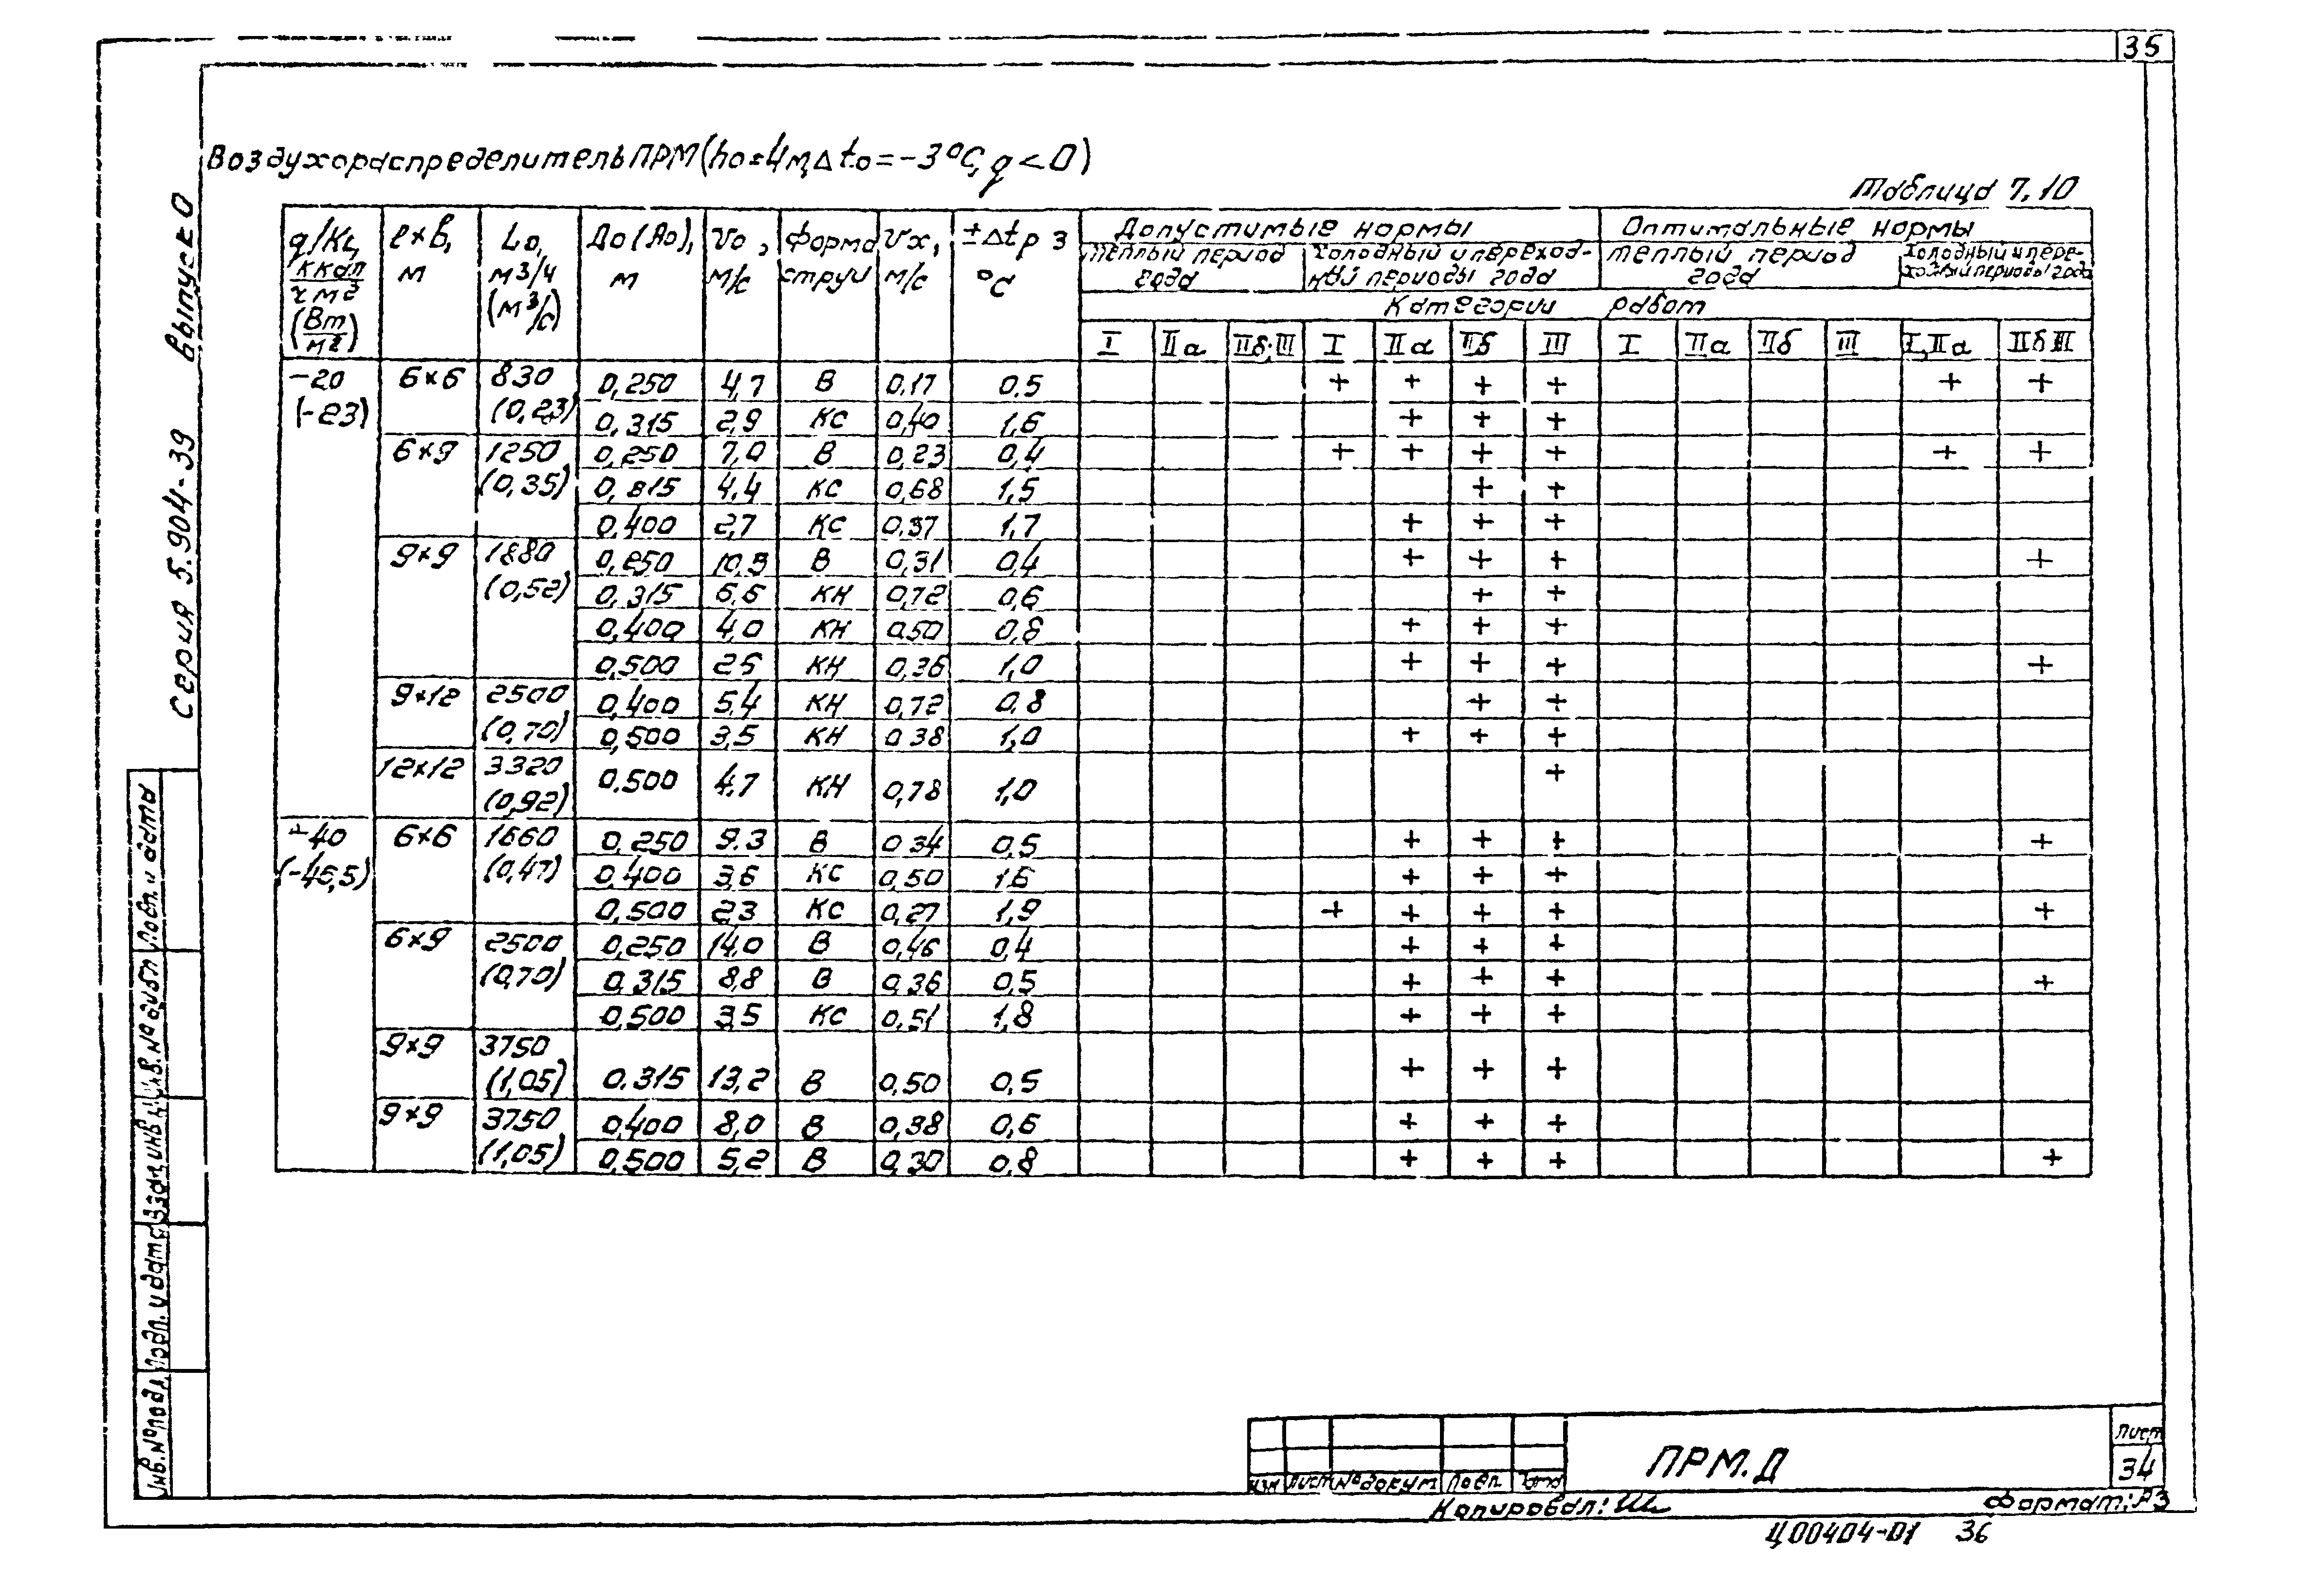 35
Воздухораспределитель ПРМ (h₀=4м, Δt₀=-3°C, q<0)
Таблица 7.10
q/Kt, ккал/ч м² (Вт/м²) | l×b, м | L₀, м³/ч (м³/с) | До (А₀), м | V₀, м/с | Форма струи | Vx, м/с | ±Δtр.з °C | Допустимые нормы | Оптимальные нормы
теплый период года | Холодный и переходный периоды года | теплый период года | Холодный и переходный периоды года
Категории работ
I | IIа | IIб;III | I | IIа | IIб | III | I | IIа | IIб | III | I,IIа | IIб III
-20 (-23) | 6×6 | 830 (0,23) | 0,250 | 4,7 | В | 0,17 | 0,5 | | | | + | + | + | + | | | | | + | +
0,315 | 2,9 | КС | 0,40 | 1,6 | | | | | + | + | + | | | | | |
6×9 | 1250 (0,35) | 0,250 | 7,0 | В | 0,23 | 0,4 | | | | + | + | + | + | | | | | + | +
0,315 | 4,4 | КС | 0,68 | 1,5 | | | | | | + | + | | | | | |
0,400 | 2,7 | КС | 0,37 | 1,7 | | | | | + | + | + | | | | | |
9×9 | 1880 (0,52) | 0,250 | 10,5 | В | 0,31 | 0,4 | | | | | + | + | + | | | | | | +
0,315 | 6,6 | КН | 0,72 | 0,6 | | | | | | + | + | | | | | |
0,400 | 4,0 | КН | 0,50 | 0,8 | | | | | + | + | + | | | | | |
0,500 | 2,5 | КН | 0,36 | 1,0 | | | | | + | + | + | | | | | | +
9×12 | 2500 (0,70) | 0,400 | 5,4 | КН | 0,72 | 0,8 | | | | | | + | + | | | | | |
0,500 | 3,5 | КН | 0 38 | 1,0 | | | | | + | + | + | | | | | |
12×12 | 3320 (0,92) | 0.500 | 4,7 | КН | 0,78 | 1,0 | | | | | | | + | | | | | |
-40 (-46,5) | 6×6 | 1660 (0,47) | 0,250 | 9.3 | В | 0 34 | 0,5 | | | | | + | + | + | | | | | | +
0,400 | 3,6 | КС | 0,50 | 1,6 | | | | | + | + | + | | | | | |
0,500 | 2,3 | КС | 0,27 | 1,9 | | | | + | + | + | + | | | | | | +
6×9 | 2500 (0,70) | 0,250 | 14,0 | В | 0,46 | 0,4 | | | | | + | + | + | | | | | |
0,315 | 8,8 | В | 0,36 | 0,5 | | | | | + | + | + | | | | | | +
0,500 | 3,5 | КС | 0,51 | 1,8 | | | | | + | + | + | | | | | |
9×9 | 3750 (1,05) | 0.315 | 13,2 | В | 0,50 | 0,5 | | | | | + | + | + | | | | | |
9×9 | 3750 (1,05) | 0,400 | 8,0 | В | 0,38 | 0,6 | | | | | + | + | + | | | | | |
0,500 | 5,2 | В | 0,30 | 0,8 | | | | | + | + | + | | | | | | +
Серия 5.904-39 Выпуск 0
Инв.№ подл. Подп. и дата Взам.инв.№ Инв.№ дубл Подп. и дата
Изм Лист № докум Подп. Дата
ПРМ.Д
Лист
34
Копировал:
Формат: А3
Ц00404-01 36